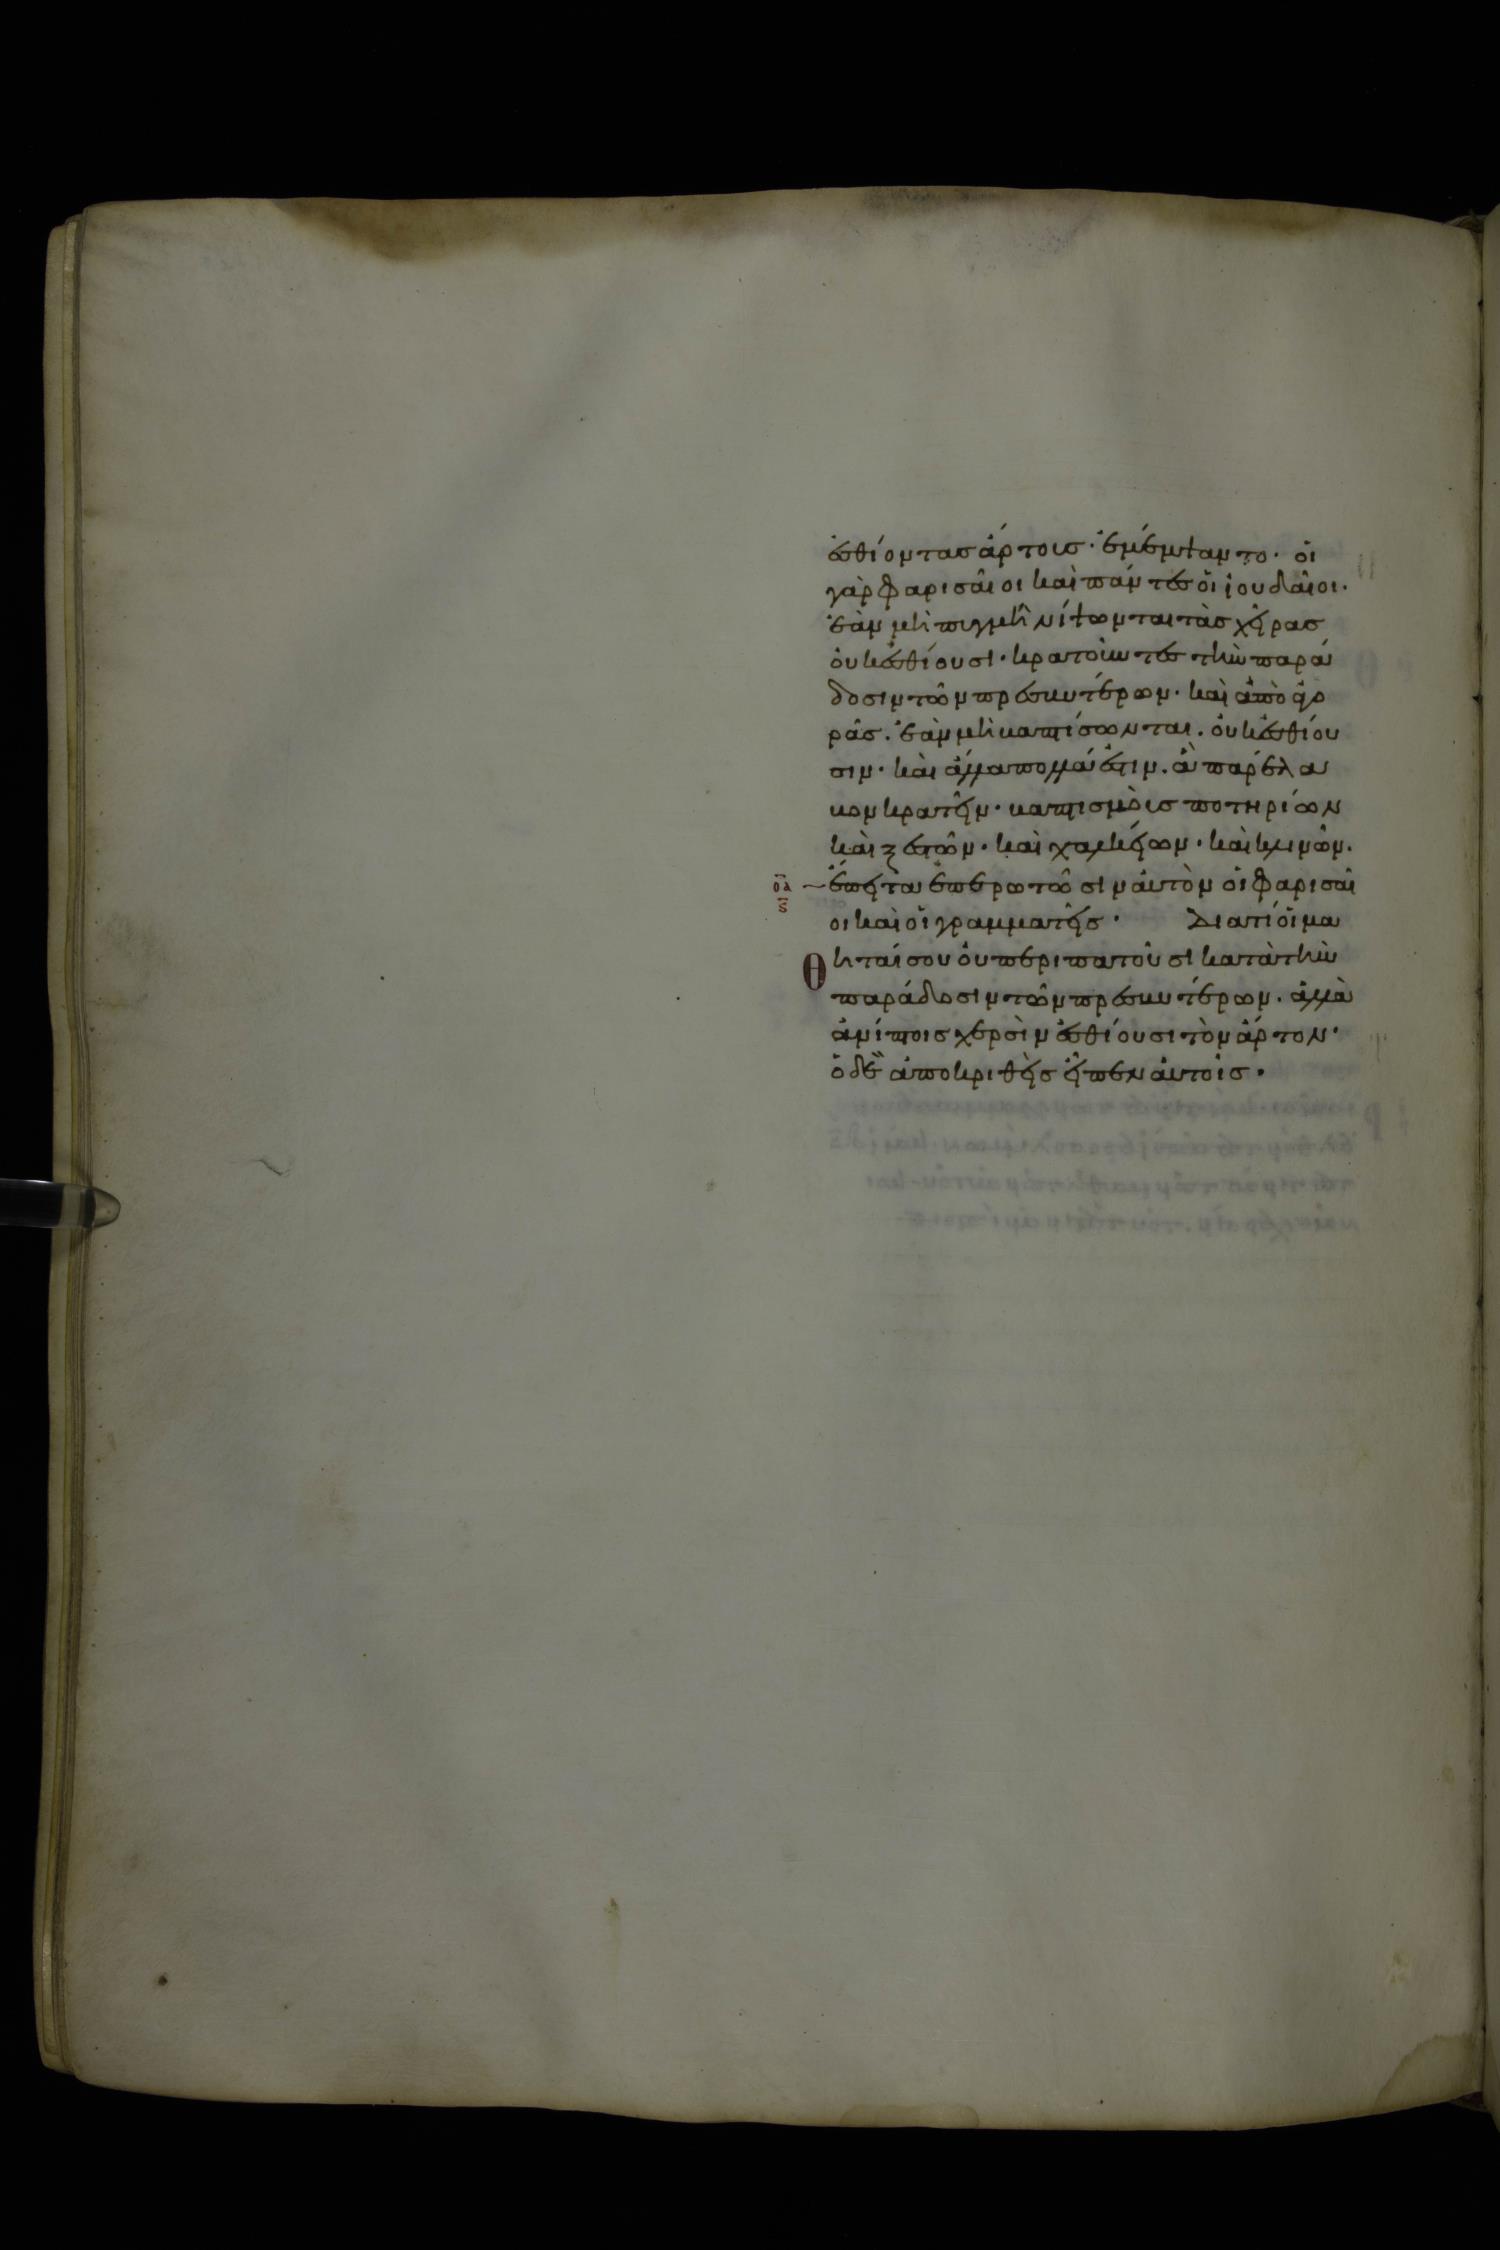 ἐσθίοντασ ἄρτοισ· ἐμέμψαντο· οἱ
γὰρ φαρισαῖοι καὶ πάντεσ οἱ ἰουδαῖοι·
ἐὰν μὴ πυγμῆ νίψωνται τὰσ χεῖρασ
οὐκ ἐσθίουσι· κρατοῦντεσ τὴν παρά
δοσιν τῶν πρεσβυτέρων· καὶ ἀπὸ ἀγο
ρᾶσ. ἐὰν μὴ βαπτίσωνται. οὐκ ἐσθίου
σιν· καὶ ἄλλα πολλά ἐστιν. ἃ παρέλα
βον κρατεῖν· βαπτισμοὺσ ποτηρίων
καὶ ξεστῶν· καὶ χαλκείων· καὶ κλινῶν.
οα
ς
ἔπειτα ἐπερωτῶσιν αὐτὸν οἱ φαρισαῖ
οι καὶ οἱ γραμματεῖσ· Διατί οἱ μα
Θηταί σου οὐ περιπατοῦσι κατὰ τὴν
παράδοσιν τῶν πρεσβυτέρων. ἀλλὰ
ἀνίπτοισ χερσὶν ἐσθίουσι τὸν ἄρτον·
ὁ δὲ ἀποκριθεὶσ εἶπεν αὐτοῖσ·